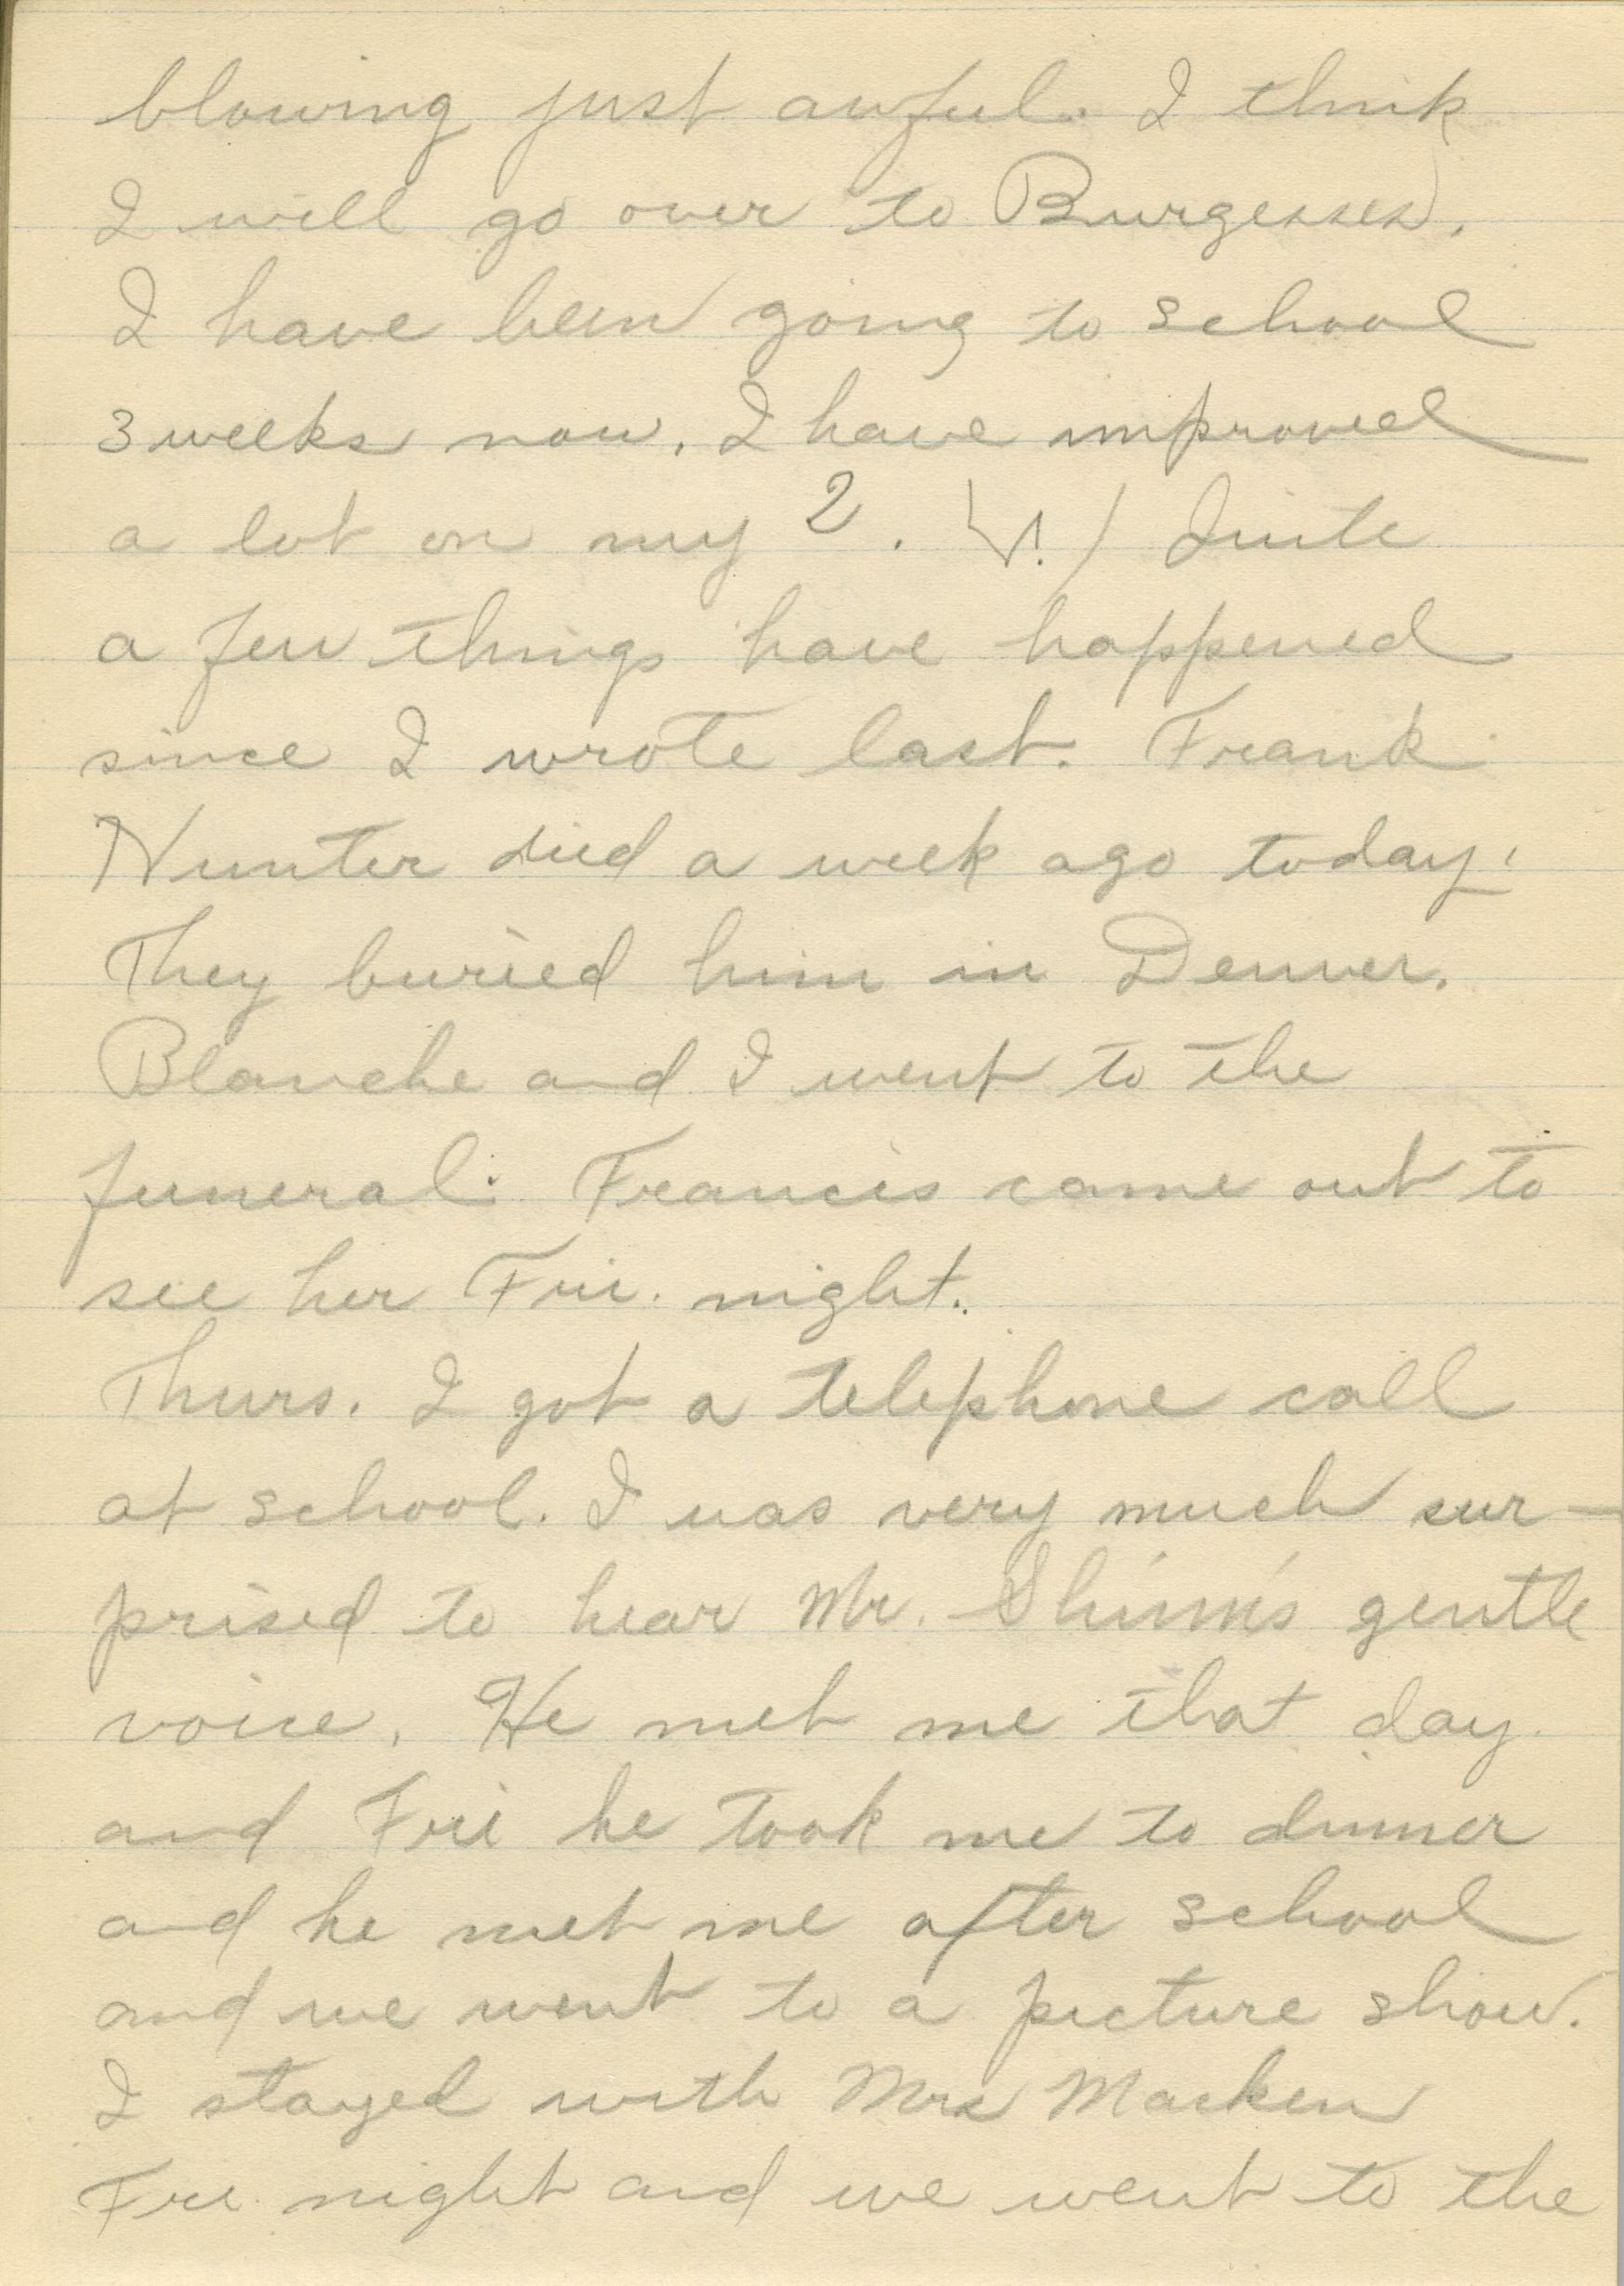 blowing just awful. I think
I will go over to Burgesses.
I have been going to school
3 weeks now. I have improved
a lot on my 2. Quite
a few things have happened
since I wrote last. Frank
Nunter died a week ago today.
They buried him in Denver.
Blanche and I went to the
funeral. Francis came out to
see her Fri. night.
Thurs. I got a telephone call
at school. I was very much sur-
prised to hear Mr. Shinn's gentle
voice. He met me that day
and Fri he took me to dinner
and he met me after school
and we went to a picture show.
I stayed with Mrs Macken
Fri. night and we went to the